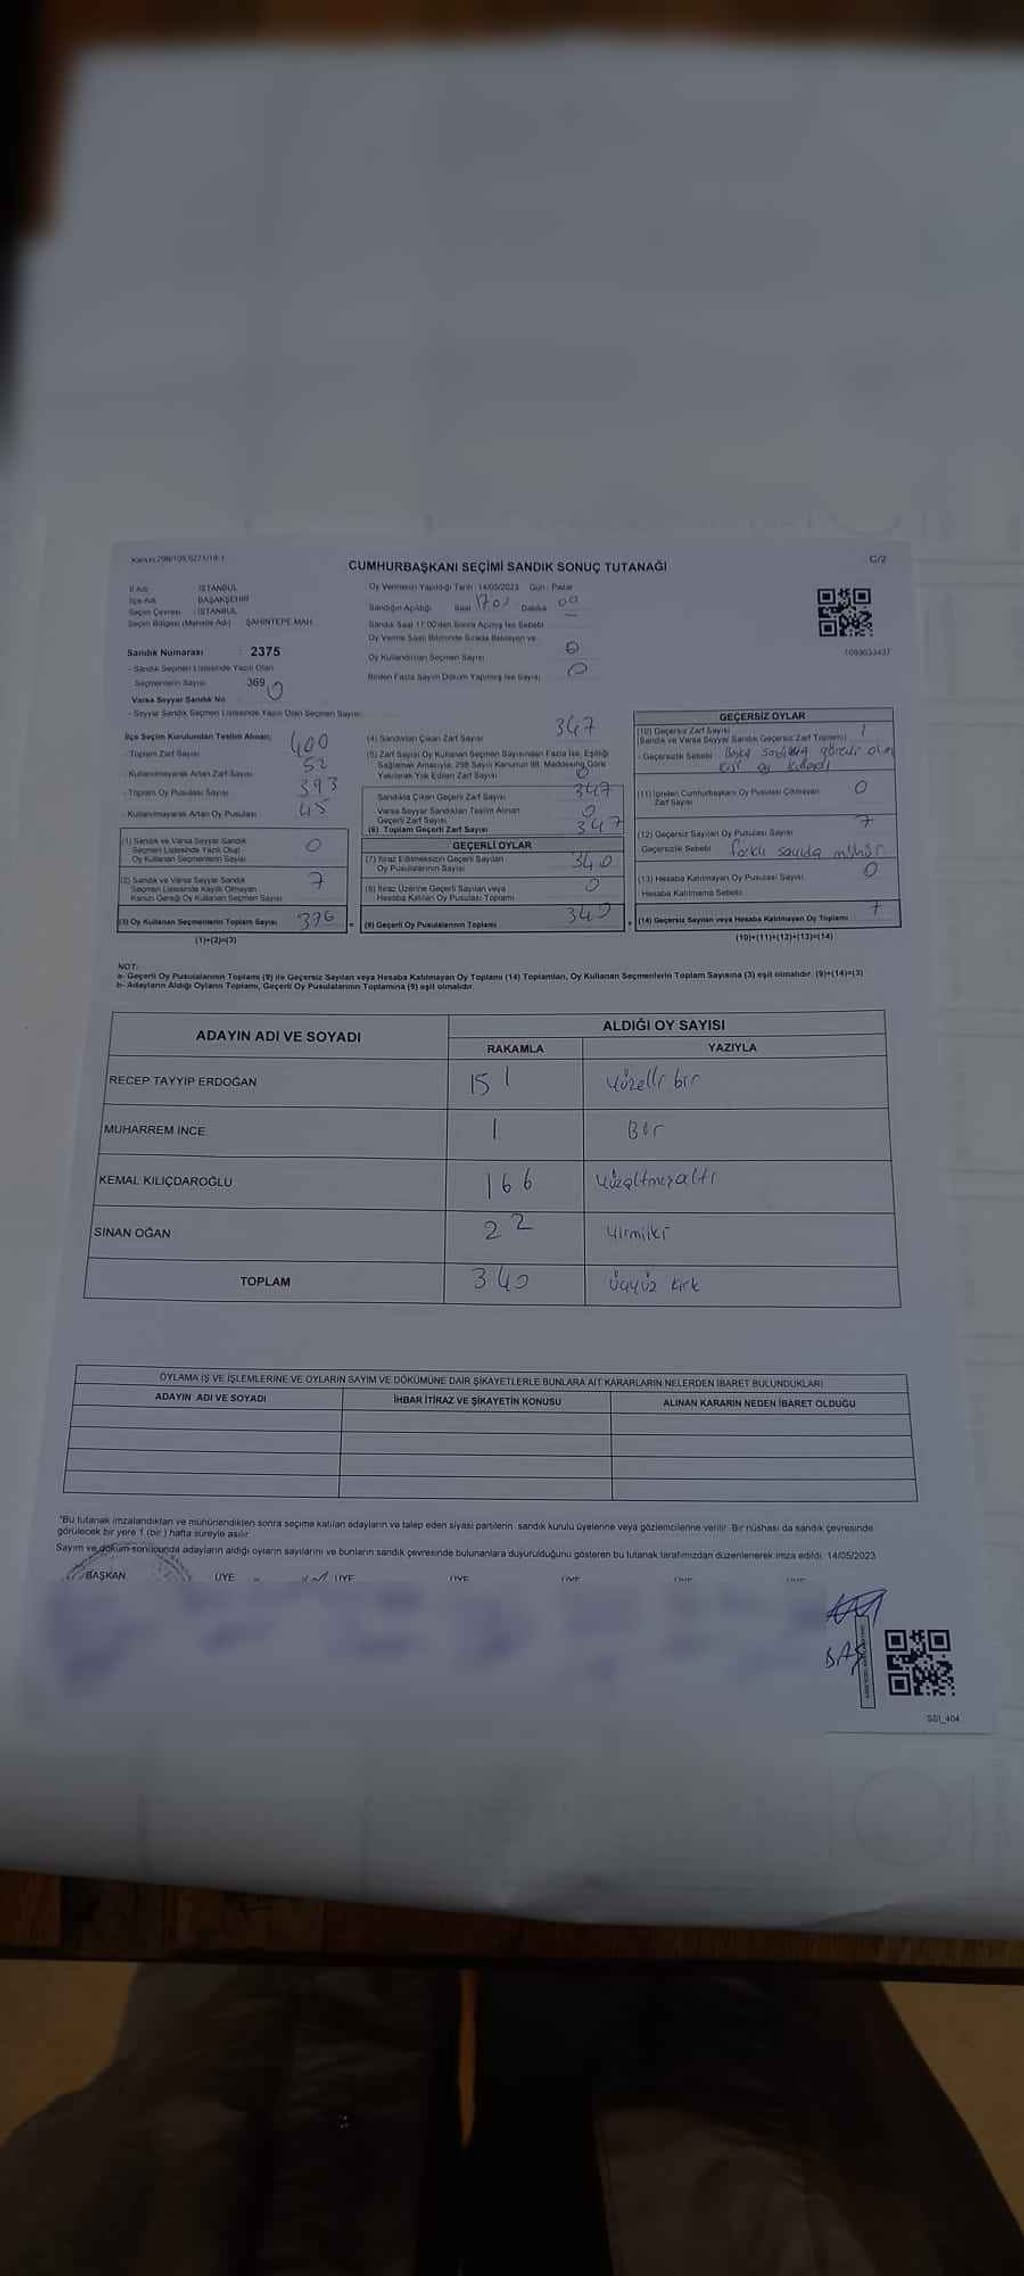 CUMHURBAŞKANI SEÇİMİ SANDIK SONUÇ TUTANAĞI
C/2
İl Adı : İSTANBUL
İlçe Adı : BAŞAKŞEHİR
Seçim Çevresi : İSTANBUL
Seçim Bölgesi (Mahalle Adı) : ŞAHİNTEPE MAH.
Sandık Numarası : 2375
- Sandık Seçmen Listesinde Yazılı Olan
Seçmenlerin Sayısı : 369
Varsa Seyyar Sandık No
0
- Seyyar Sandık Seçmen Listesinde Yazılı Olan Seçmen Sayısı
Oy Vermenin Yapıldığı Tarih : 14/05/2023 Gün : Pazar
Sandığın Açıldığı Saat 17:00 Dakika 00
Sandık Saat 17:00'den Sonra Açılmış İse Sebebi
Oy Verme Saati Bitiminde Sırada Bekleyen ve
Oy Kullandırılan Seçmen Sayısı 0
Birden Fazla Sayım Döküm Yapılmış İse Sayısı 0
1093033437
İlçe Seçim Kurulundan Teslim Alınan;
- Toplam Zarf Sayısı 400
- Kullanılmayarak Artan Zarf Sayısı 52
- Toplam Oy Pusulası Sayısı 393
- Kullanılmayarak Artan Oy Pusulası 45
(1) Sandık ve Varsa Seyyar Sandık
Seçmen Listesinde Yazılı Olup
Oy Kullanan Seçmenlerin Sayısı 0
(2) Sandık ve Varsa Seyyar Sandık
Seçmen Listesinde Kayıtlı Olmayan
Kanun Gereği Oy Kullanan Seçmen Sayısı 7
(3) Oy Kullanan Seçmenlerin Toplam Sayısı 376
(1)+(2)=(3)
(4) Sandıktan Çıkan Zarf Sayısı 347
(5) Zarf Sayısı Oy Kullanan Seçmen Sayısından Fazla İse, Eşitliği
Sağlamak Amacıyla, 298 Sayılı Kanunun 98. Maddesine Göre
Yakılarak Yok Edilen Zarf Sayısı 0
Sandıkta Çıkan Geçerli Zarf Sayısı 347
Varsa Seyyar Sandıktan Teslim Alınan
Geçerli Zarf Sayısı 0
(6) Toplam Geçerli Zarf Sayısı 347
GEÇERLİ OYLAR
(7) İtiraz Edilmeksizin Geçerli Sayılan
Oy Pusulalarının Sayısı 340
(8) İtiraz Üzerine Geçerli Sayılan veya
Hesaba Katılan Oy Pusulası Toplamı 0
(9) Geçerli Oy Pusulalarının Toplamı 340
GEÇERSİZ OYLAR
(10) Geçersiz Zarf Sayısı 1
(Sandık ve Varsa Seyyar Sandık Geçersiz Zarf Toplamı)
- Geçersizlik Sebebi Başka sandıkta görevli olan
kişi oy kullandı
(11) İçinden Cumhurbaşkanı Oy Pusulası Çıkmayan
Zarf Sayısı 0
(12) Geçersiz Sayılan Oy Pusulası Sayısı 7
Geçersizlik Sebebi farklı sayıda mühür
(13) Hesaba Katılmayan Oy Pusulası Sayısı 0
Hesaba Katılmama Sebebi
(14) Geçersiz Sayılan veya Hesaba Katılmayan Oy Toplamı 7
(10)+(11)+(12)+(13)=(14)
NOT:
a- Geçerli Oy Pusulalarının Toplamı (9) ile Geçersiz Sayılan veya Hesaba Katılmayan Oy Toplamı (14) Toplamları, Oy Kullanan Seçmenlerin Toplam Sayısına (3) eşit olmalıdır. (9)+(14)=(3)
b- Adayların Aldığı Oyların Toplamı, Geçerli Oy Pusulalarının Toplamına (9) eşit olmalıdır.
ADAYIN ADI VE SOYADI
ALDIĞI OY SAYISI
RAKAMLA YAZIYLA
RECEP TAYYİP ERDOĞAN 151 Yüzelli bir
MUHARREM İNCE 1 Bir
KEMAL KILIÇDAROĞLU 166 Yüzaltmışaltı
SİNAN OĞAN 22 Yirmiiki
TOPLAM 340 Üçyüz kırk
OYLAMA İŞ VE İŞLEMLERİNE VE OYLARIN SAYIM VE DÖKÜMÜNE DAİR ŞİKAYETLERLE BUNLARA AİT KARARLARIN NELERDEN İBARET BULUNDUKLARI
ADAYIN ADI VE SOYADI İHBAR İTİRAZ VE ŞİKAYETİN KONUSU ALINAN KARARIN NEDEN İBARET OLDUĞU
*Bu tutanak imzalandıktan ve mühürlendikten sonra seçime katılan adayların ve talep eden siyasi partilerin sandık kurulu üyelerine veya gözlemcilerine verilir. Bir nüshası da sandık çevresinde
görülecek bir yere 1 (bir) hafta süreyle asılır.
Sayım ve döküm sonucunda adayların aldığı oyların sayılarını ve bunların sandık çevresinde bulunanlara duyurulduğunu gösteren bu tutanak tarafımızdan düzenlenerek imza edildi. 14/05/2023
BAŞKAN ÜYE ÜYE ÜYE ÜYE ÜYE ÜYE
SSI_404